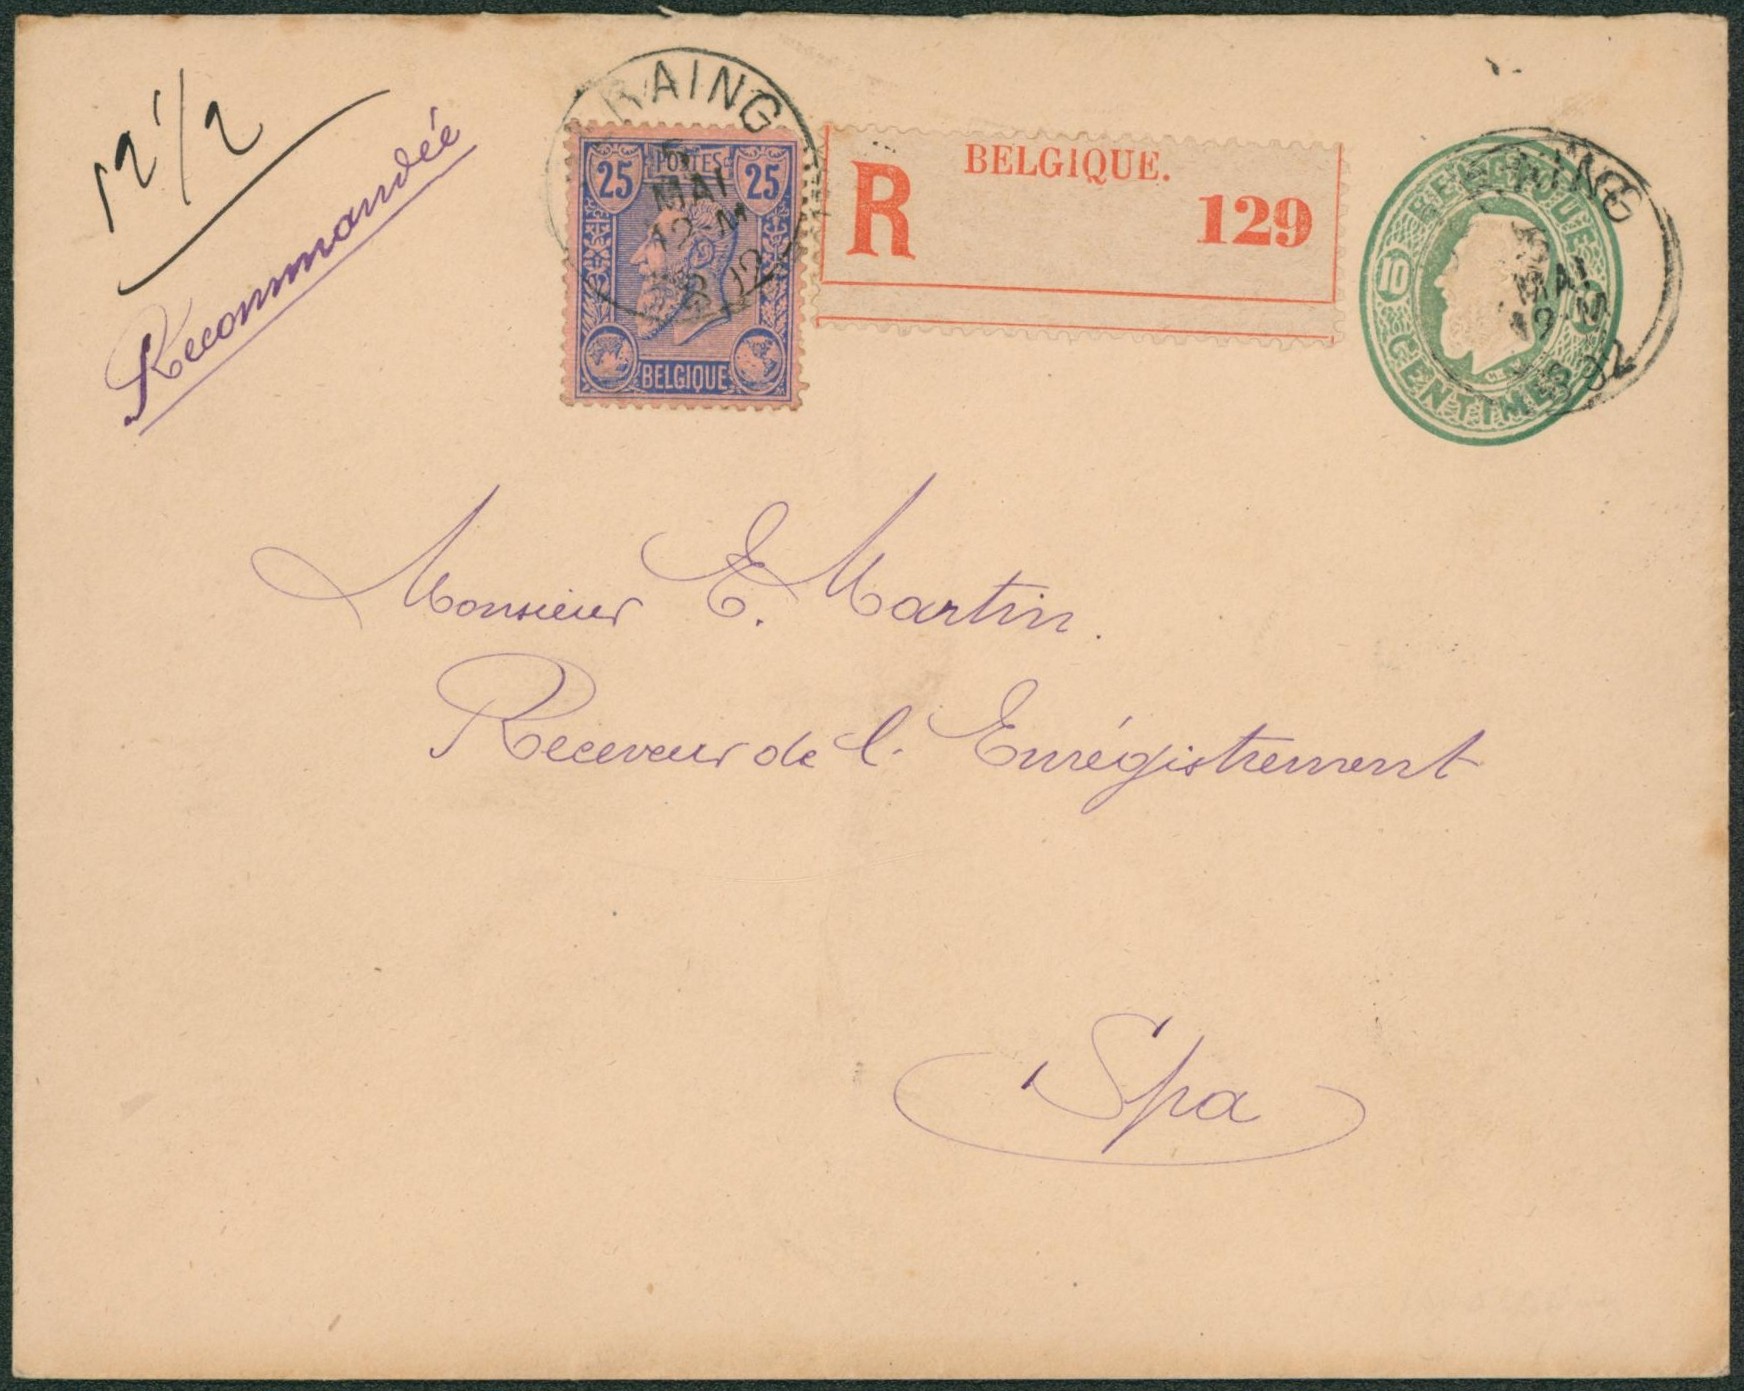 12 1/2
Recommandée
RAING
5
MAI
12-M
1892
25 POSTES 25
BELGIQUE
BELGIQUE.
R 129
BELGIQUE
10
CENTIMES
AING
MAI
12-M
Monsieur E. Martin.
Receveur de l'Enrégistrement
Spa